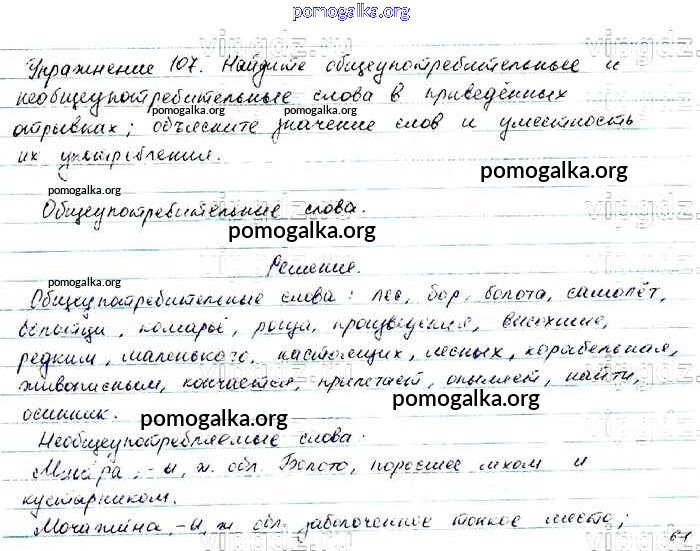 pomogalka.org
Упражнение 107. Найдите общеупотребительные и
необщеупотребительные слова в приведённых
pomogalka.org pomogalka.org
отрывках; объясните значение слов и уместность
их употребления.
pomogalka.org
pomogalka.org
Общеупотребительные слова.
pomogalka.org
Решение.
pomogalka.org
Общеупотребительные слова: лес, бор, болота, самолёт,
комарьё, роща, произведения, высохшие,
редким, маленького, настоящих, лесных, корабельная,
живописным, кончается, прилетает, опыляет, найти,
осинник.
pomogalka.org
pomogalka.org
Необщеупотребляемые слова:
Мшара, -ы, ж. обл. Болото, поросшее мхом и
кустарником.
Мочажина, -ы ж обл. заболоченное топкое место;
61